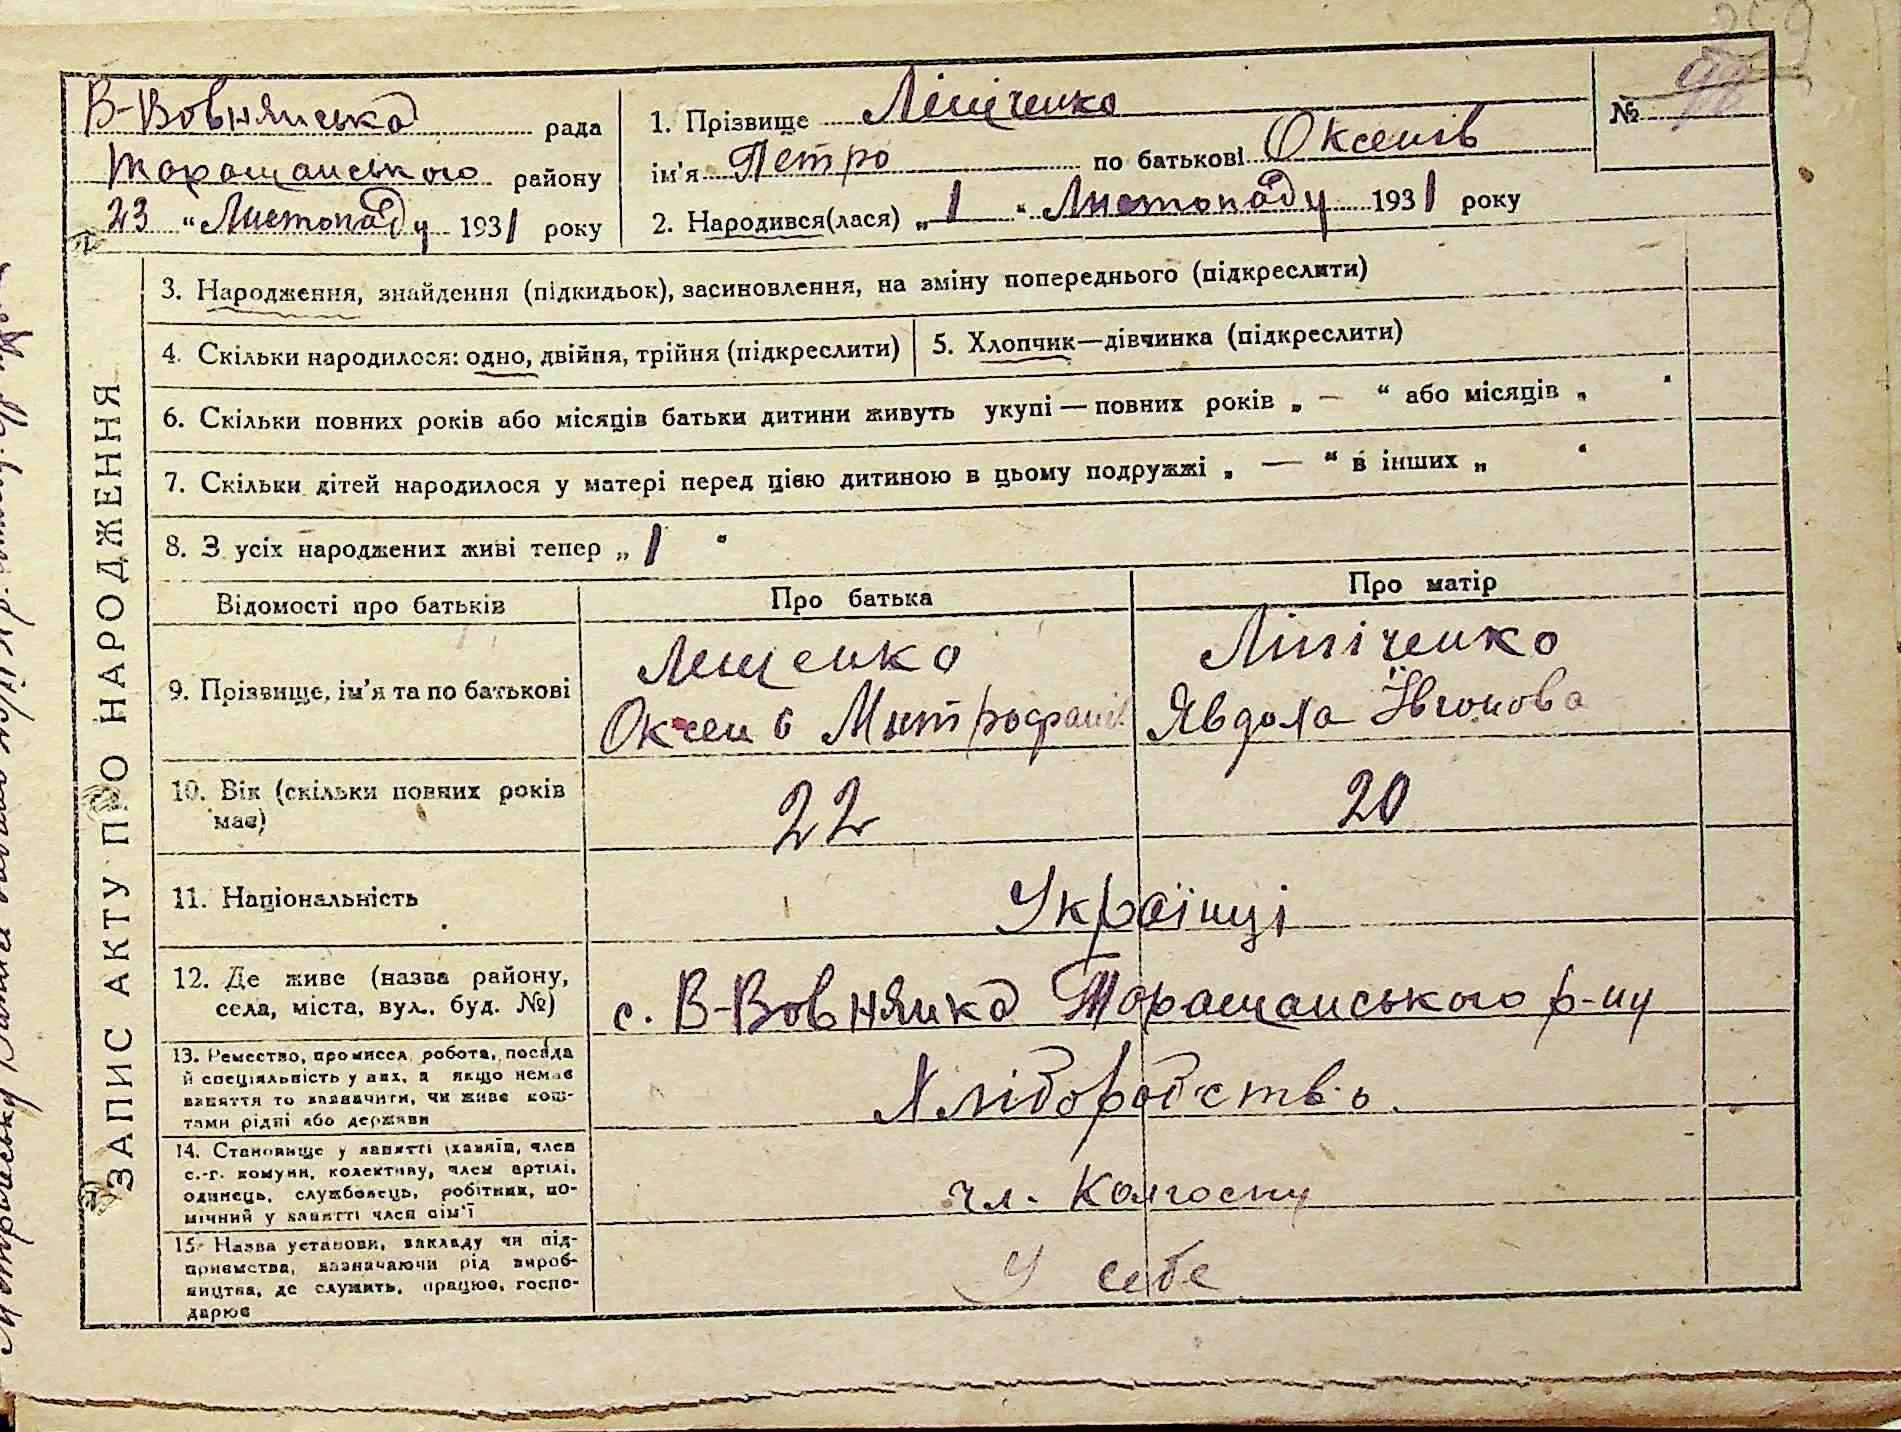 В-Вовнянська рада
Таращанського району
23 "Листопаду 1931 року
1. Прізвище Ліпіченко
ім'я Петро по батькові Оксенів
2. Народився(лася) „1 " Листопаду 1931 року
№
ЗАПИС АКТУ ПРО НАРОДЖЕННЯ
3. Народження, знайдення (підкидьок), засиновлення, на зміну попереднього (підкреслити)
4. Скільки народилося: одно, двійня, трійня (підкреслити)
5. Хлопчик—дівчинка (підкреслити)
6. Скільки повних років або місяців батьки дитини живуть укупі — повних років „ — " або місяців „ "
7. Скільки дітей народилося у матері перед цією дитиною в цьому подружжі „ — " в інших „ "
8. З усіх народжених живі тепер „ 1 "
Відомості про батьків
Про батька
Про матір
9. Прізвище, ім'я та по батькові
Лещенко
Оксен Митрофанів
Ліпіченко
Явдоха
10. Вік (скільки повних років
має)
22
20
11. Національність
Українці
12. Де живе (назва району,
села, міста, вул., буд. №)
с. В-Вовнянка Таращанського р-ну
13. Ремество, промисел, робота, посада
й спеціяльність у них, а якщо немає
заняття то зазначити, чи живе кош-
тами рідні або держави
Хліборобство.
14. Становище у занятті (хазяїн, член
с.-г. комуни, колективу, член артілі,
одинець, службовець, робітник, по-
мічний у занятті член сім'ї
чл. Колгоспу
15. Назва установи, закладу чи під-
приємства, зазначаючи рід вироб-
ництва, де служить, працює, госпо-
дарює
У себе